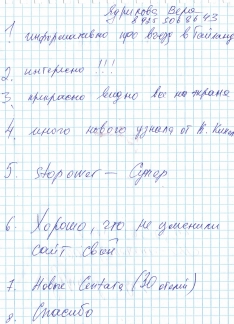 Ядрихова Вера
1. информативно про въезд в Тайланд
2. интересно !!!
3. прекрасно видно все на экране
4. много нового узнала от
5. stopower — Супер
6. Хорошо, что не изменили
сайт свой
7. Новые Centara (30 отелей)
8. Спасибо